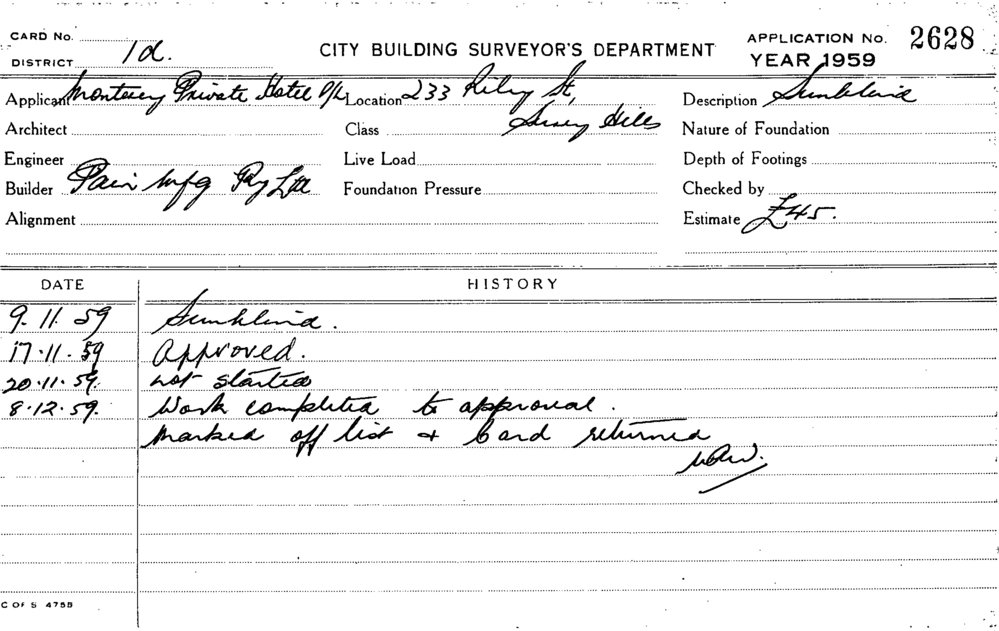 CARD No.
DISTRICT 1d.
CITY BUILDING SURVEYOR'S DEPARTMENT
APPLICATION No. 2628
YEAR 1959
Applicant Monterey Private Hotel P/L Location 233 Riley St, Description Sunblind
Architect Class Surry Hills Nature of Foundation
Engineer Live Load Depth of Footings
Builder Pain Mfg Pty Ltd Foundation Pressure Checked by
Alignment Estimate £45.
DATE HISTORY
9.11.59 Sunblind.
17.11.59 Approved.
20.11.59. not started
8.12.59. Work completed to approval.
Marked off list + Card returned
C OF S 475B